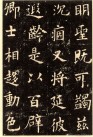 明聖既可蠲茲
沉痼又將延彼
遐齡是以百辟
卿士相趨動色